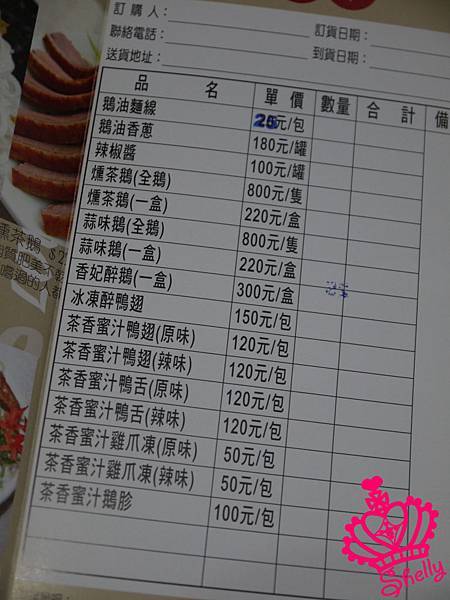 訂購人:
訂貨日期:
聯絡電話:
到貨日期:
送貨地址:
品名 單價 數量 合計 備
鵝油麵線 25元/包
鵝油香蔥 180元/罐
辣椒醬 100元/罐
燻茶鵝(全鵝) 800元/隻
燻茶鵝(一盒) 220元/盒
蒜味鵝(全鵝) 800元/隻
蒜味鵝(一盒) 220元/盒
香妃醉鵝(一盒) 300元/盒
冰凍醉鴨翅 150元/包
茶香蜜汁鴨翅(原味) 120元/包
茶香蜜汁鴨翅(辣味) 120元/包
茶香蜜汁鴨舌(原味) 120元/包
茶香蜜汁鴨舌(辣味) 120元/包
茶香蜜汁雞爪凍(原味) 50元/包
茶香蜜汁雞爪凍(辣味) 50元/包
茶香蜜汁鵝胗 100元/包
Shelly